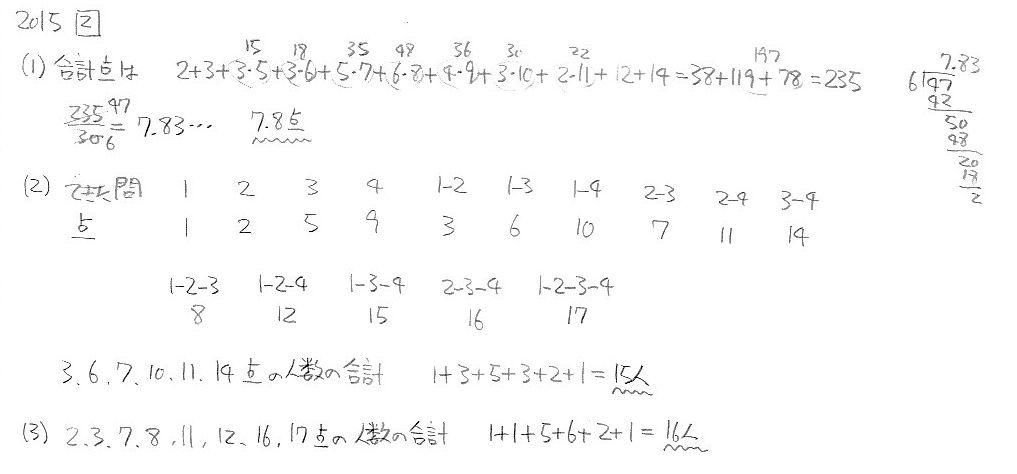 2015 [2]
15 18 35 48 36 30 22 197
(1) 合計点は 2+3+3・5+3・6+5・7+6・8+4・9+3・10+2・11+12+14=38+119+78=235
235/30 = 47/6 = 7.83… 7.8点
7.83
6)47
42
50
48
20
18
2
(2) できた問 1 2 3 4 1-2 1-3 1-4 2-3 2-4 3-4
点 1 2 5 9 3 6 10 7 11 14
1-2-3 1-2-4 1-3-4 2-3-4 1-2-3-4
8 12 15 16 17
3、6、7、10、11、14点の人数の合計 1+3+5+3+2+1=15人
(3) 2、3、7、8、11、12、16、17点の人数の合計 1+1+5+6+2+1=16人